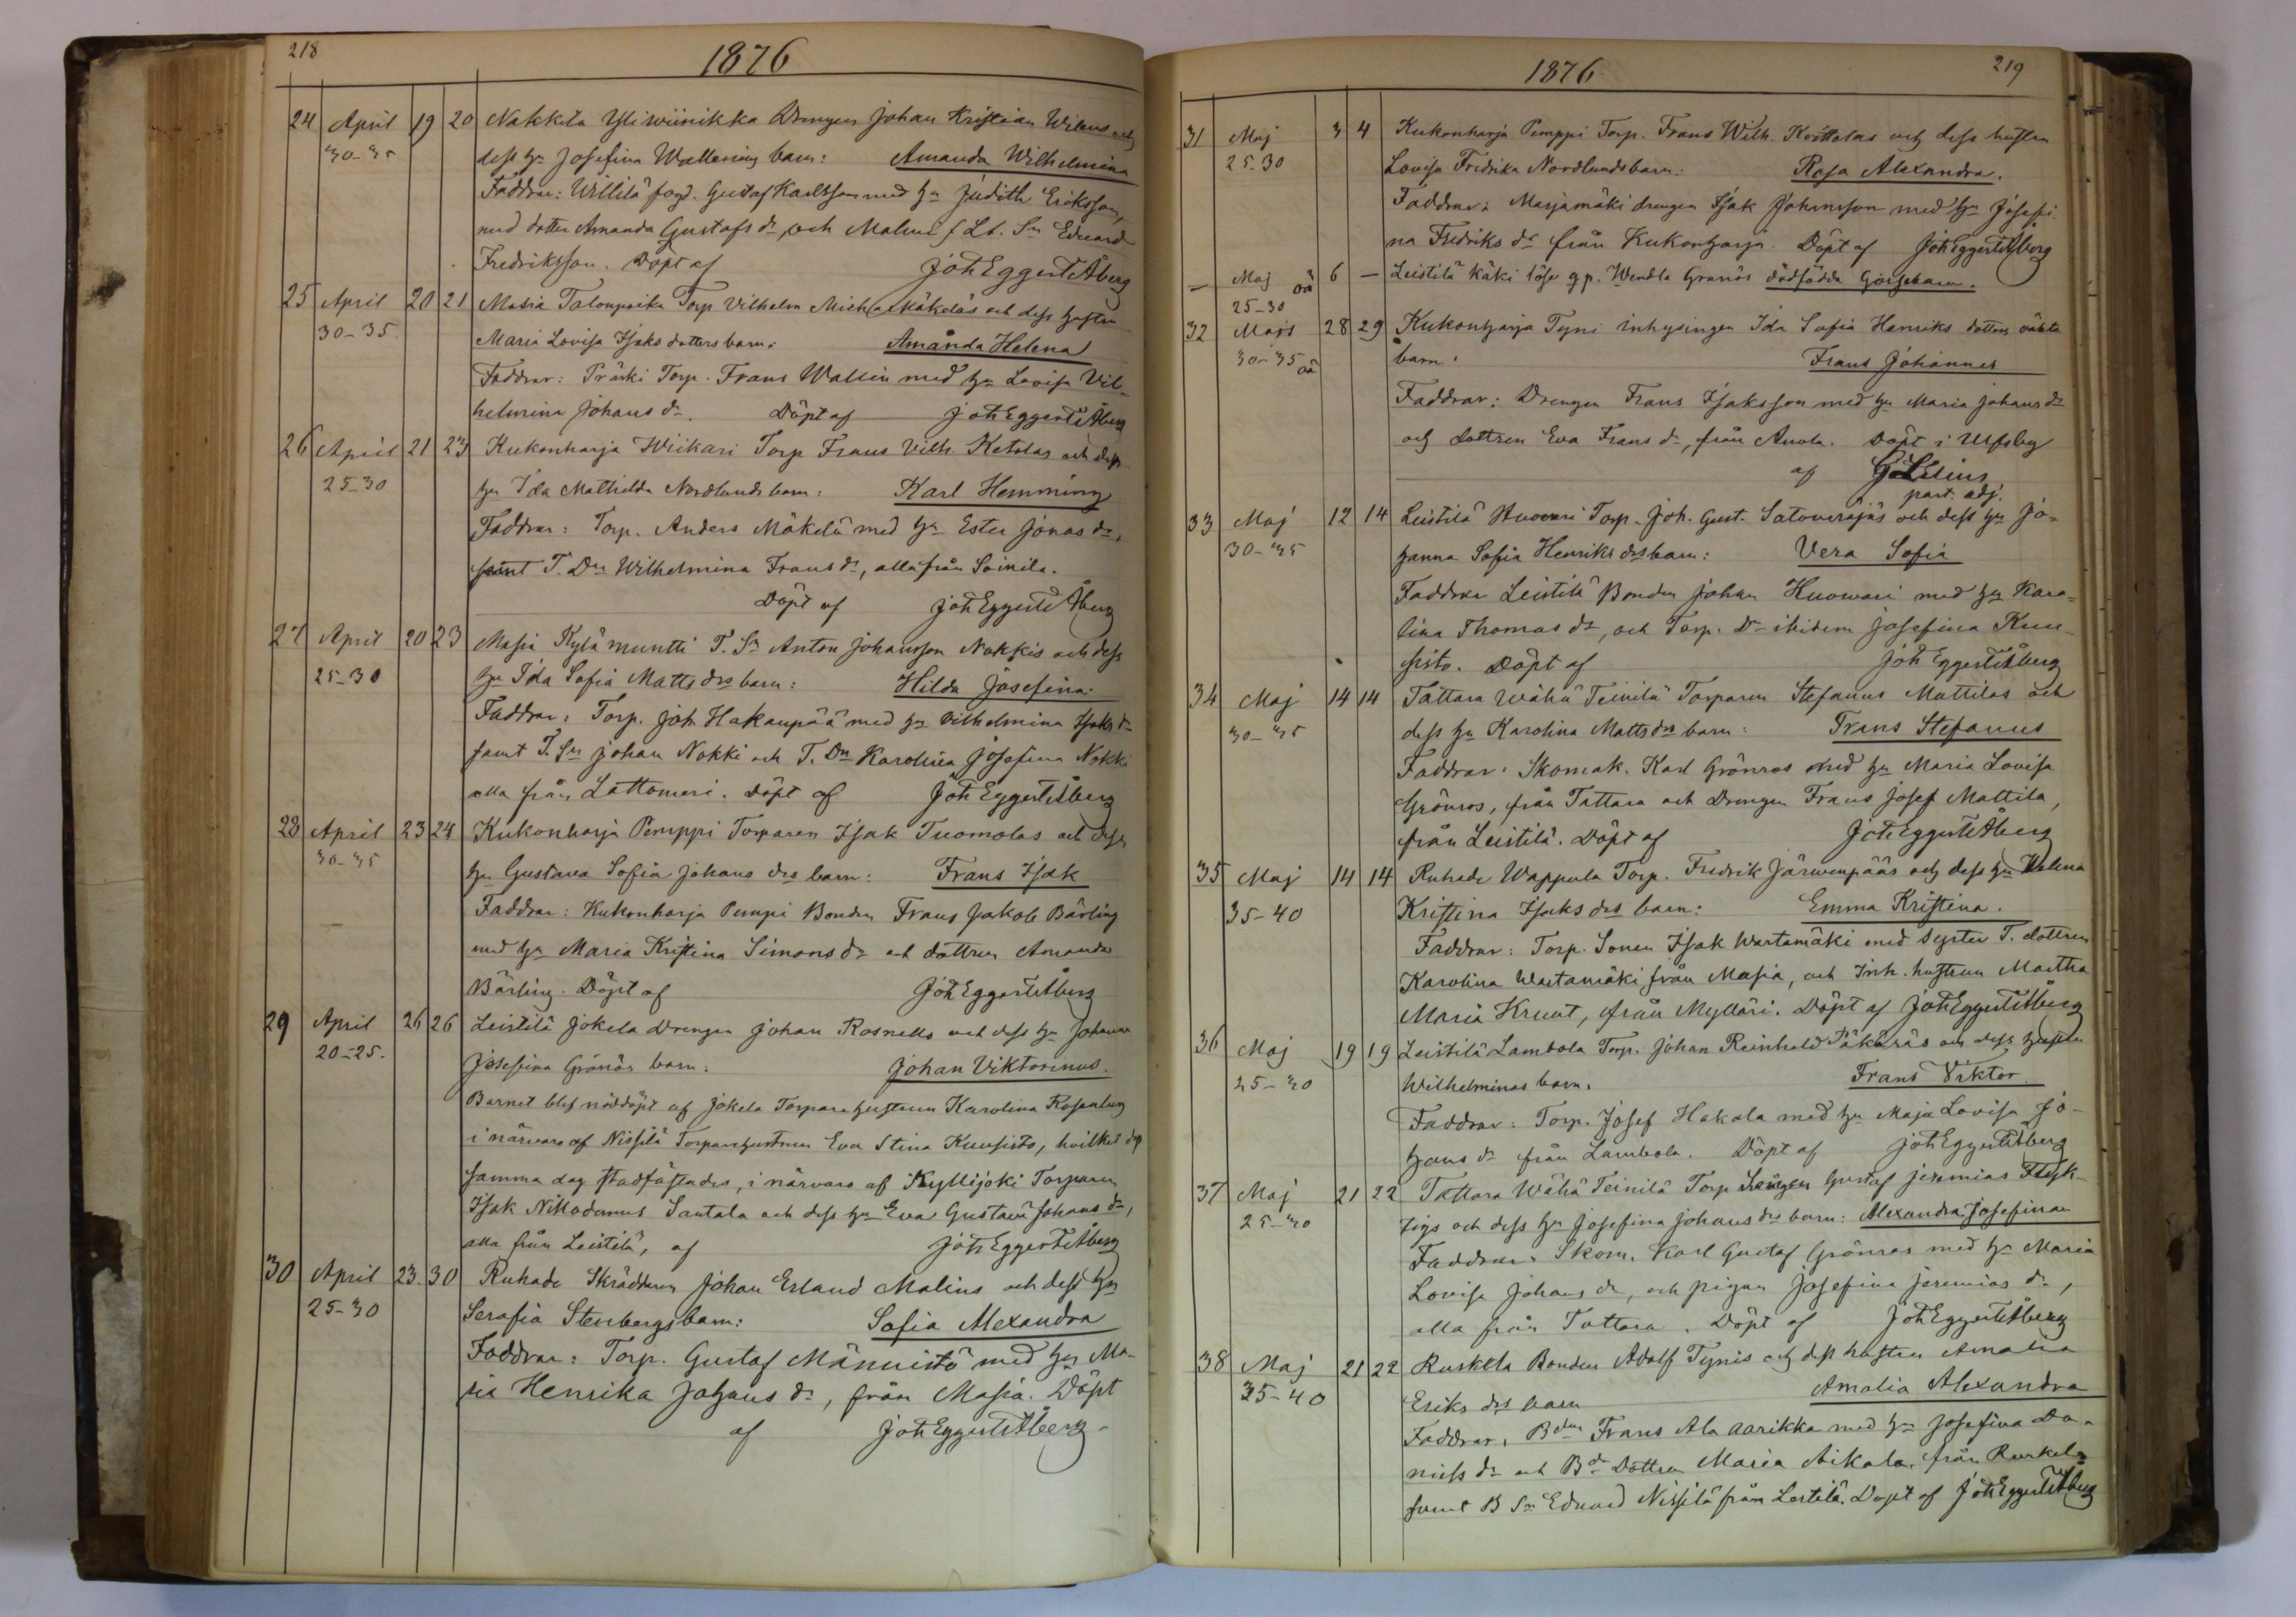 218
1876
24 April 19 20 Nakkila Yliwiinikka Drengen Johan Kristian Wilens och
30-35 dess hu Josefina Wallenius barn: Amanda Wilhelmina
Faddrar: Willilä fogd. Gustaf Karlsson med hu Judith Eriksson,
med dotter Amanda Gustafs dr, och Malmi f Lt. Sn Eduard
Fredriksson. Döpt af Joh Eggert Åberg
25 April 20 21 Masia Talonpoika Torp Vilhelm Mich Mäkeläs och dess hustru
30-35. Maria Lovisa Isaks dotters barn: Amanda Helena
Faddrar: Präski Torp. Frans Wallin med hu Lovisa Vil-
helmina Johans dr. Döpt af Joh Eggert Åberg
26 April 21 23 Kukonharja Wiikari Torp Frans Vilh. Ketolas och dess
25-30 hu Ida Mathilda Nordlunds barn: Karl Hemming
Faddrar: Torp. Anders Mäkelä med hu Ester Jonas dr,
samt T. Dn Wilhelmina Frans dr, alla från Soinila.
Döpt af Joh Eggert Åberg
27 April 20 23 Masia Kylämuntti T. Sn Anton Johansson Nokkis och dess
25-30 hu Ida Sofia Matts drs barn: Hilda Josefina.
Faddrar: Torp. Joh. Hakanpää med hu Vilhelmina Isaks dr
samt T. Sn Johan Nokki och T. Dn Karolina Josefina Nokki
alla från Lattomeri. Döpt af Joh Eggert Åberg
28 April 23 24 Kukonharja Pemppi Torparen Isak Tuomolas och dess
30-35 hu Gustava Sofia Johans drs barn: Frans Isak
Faddrar: Kukonharja Pempi Bonden Frans Jakob Bärling
med hu Maria Kristina Simons dr och dottren Amanda
Bärling. Döpt af Joh Eggert Åberg
29 April 26 26 Leistilä Jokela Drengen Johan Rosnells och dess hu Johanna
20-25. Josefina Grönös barn: Johan Viktorinus.
Barnet blef nöddöpt af Jokela Torpare hustrun Karolina Rosenlund
i närvaro af Nissilä Torparehustrun Eva Stina Kuusisto, hvilket dop
samma dag stadfästades, i närvaro af Kyllijoki Torparen
Isak Nikodemus Santala och dess hu Eva Gustava Johans dr,
alla från Leistilä, af Joh Eggert Åberg
30 April 23. 30 Ruhade Skräddaren Johan Erland Malins och dess hu
25-30 Serafia Stenbergs barn: Sofia Alexandra
Faddrar: Torp. Gustaf Männistö med hu Ma-
ria Henrika Johans dr, från Masia. Döpt
af Joh Eggert Åberg.
1876 219
31 Maj 3 4 Kukonharja Pemppi Torp. Frans Wilh. Korttolas och dess hustru
25-30 Lovisa Fredrika Nordlunds barn: Rosa Alexandra.
Faddrar: Marjamäki drengen Isak Johansson med hu Josefi-
na Fredriks dr från Kukonharja. Döpt af Joh Eggert Åberg
— Maj oä 6 — Leistilä Käki löse qp. Wendla Granös dödfödda Gossebarn.
25-30
32 Majs 28 29 Kukonharja Tyni inhysingen Ida Sofia Henriks dotters oäkta
30-35 oä barn: Frans Johannes
Faddrar: Drengen Frans Isaksson med hu Maria Johans dr
och dottren Eva Frans dr, från Anola. Döpt i Ulfsby
af G Lilius
past. adj.
33 Maj 12 14 Leistilä Huovari Torp. Joh. Gust. Satoveräjäs och dess hu Jo-
30-35 hanna Sofia Henriks drs barn: Vera Sofia
Faddrar Leistilä Bonden Johan Huowari med hu Karo-
lina Thomas dr, och Torp. Dr ibidem Josefina Kuu-
sisto. Döpt af Joh Eggert Åberg
34 Maj 14 14 Tattara Wähä Teinilä Torparen Stefanus Mattilas och
30-35 dess hu Karolina Matts drs barn: Frans Stefanus
Faddrar: Skomak. Karl Grönros med hu Maria Lovisa
Grönros, från Tattara och Drengen Frans Josef Mattila,
från Leistilä. Döpt af Joh Eggert Åberg
35 Maj 14 14 Ruhade Wappula Torp. Fredrik Järwenpääs och dess hu Helena
35-40 Kristina Isaks drs barn: Emma Kristina.
Faddrar: Torp. Sonen Isak Wartamäki med syster T. dottren
Karolina Wartamäki från Masia, och Inh. hustrun Martha
Maria Kruut, från Mylläri. Döpt af Joh Eggert Åberg
36 Maj 19 19 Leistilä Lambola Torp. Johan Reinhold Päkäräs och dess hustru
25-30 Wilhelminas barn: Frans Viktor.
Faddrar: Torp. Josef Hakala med hu Maja Lovisa Jo-
hans dr från Lambola. Döpt af Joh Eggert Åberg
37 Maj 21 22 Tattara Wähä Teinilä Torp Gustaf Jeremias Flyk-
25-30 tigs och dess hu Josefina Johans drs barn: Alexandra Josefina
Faddrar: Skom. Karl Gustaf Grönros med hu Maria
Lovisa Johans dr, och pigan Josefina Jeremias dr,
alla från Tattara. Döpt af Joh Eggert Åberg
38 Maj 21 22 Ruskila Bonden Adolf Tynis och dess hustru Amalia
35-40 Eriks drs barn Amalia Alexandra
Faddrar: Bdn Frans Ala aarikka med hu Josefina Da-
niels dr och Bd Dottren Maria Aikala, från Ruskela
samt B Sn Eduard Nissilä från Leistilä. Döpt af Joh Eggert Åberg